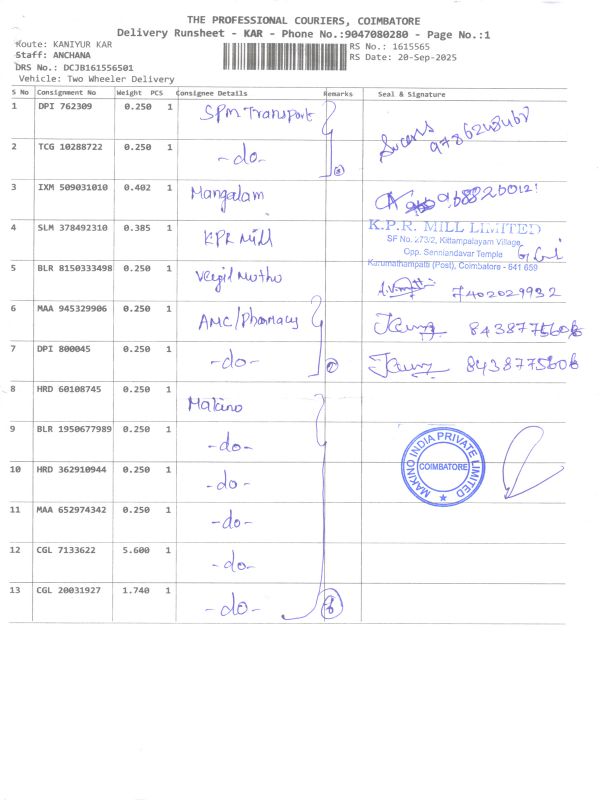 THE PROFESSIONAL COURIERS, COIMBATORE
Delivery Runsheet - KAR - Phone No.:9047080280 - Page No.:1
Route: KANIYUR KAR
RS No.: 1615565
Staff: ANCHANA
RS Date: 20-Sep-2025
DRS No.: DCJB161556501
Vehicle: Two Wheeler Delivery
S No Consignment No Weight PCS Consignee Details Remarks Seal & Signature
1 DPI 762309 0.250 1 SPM Transport
2 TCG 10288722 0.250 1 -do-
3 IXM 509031010 0.402 1 Mangalam
4 SLM 378492310 0.385 1 KPR Mill K.P.R. MILL LIMITED
SF No. 273/2, Kittampalayam Village,
Opp. Senniandavar Temple
Karumathampatti (Post), Coimbatore - 641 659
5 BLR 8150333498 0.250 1 7402029932
6 MAA 945329906 0.250 1 AMC/Pharmacy 8438775606
7 DPI 800045 0.250 1 -do- 8438775606
8 HRD 60108745 0.250 1 Makino
9 BLR 1950677989 0.250 1 -do- MAKINO INDIA PRIVATE LIMITED
COIMBATORE
10 HRD 362910944 0.250 1 -do-
11 MAA 652974342 0.250 1 -do-
12 CGL 7133622 5.600 1 -do-
13 CGL 20031927 1.740 1 -do- 6